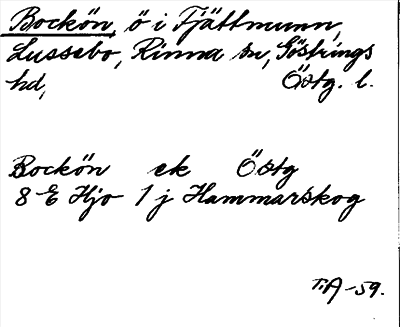 Bockön, ö i Tjättmunn,
Lussebo, Rinna sn, Göstrings
hd, Östg. l.
Bockön ek Östg
8 E Hjo 1 j Hammarskog
TiA -59.